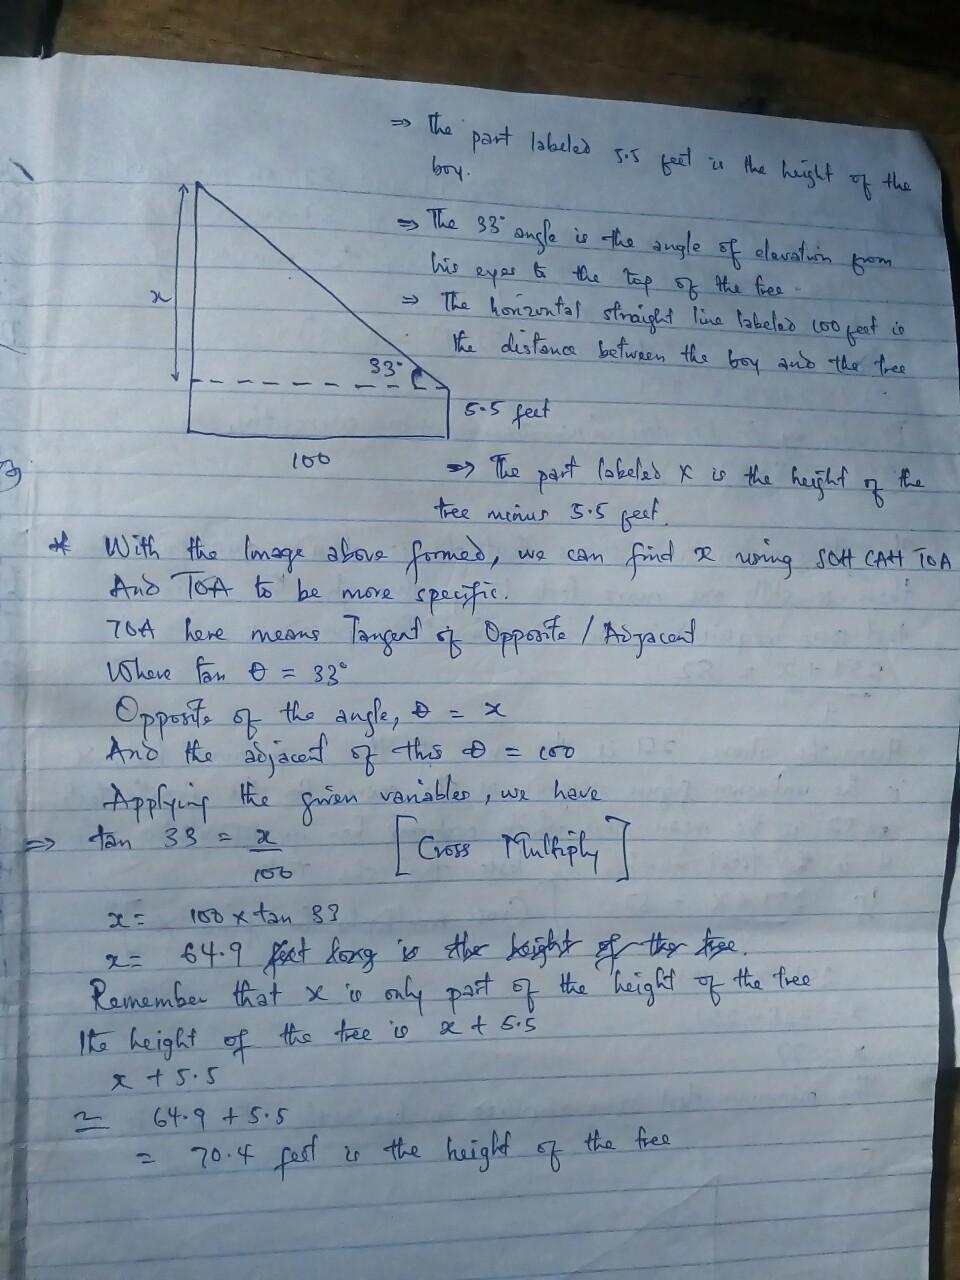 ⇒ The part labeled 5.5 feet is the height of the
boy.
⇒ The 33° angle is the angle of elevation from
his eyes to the top of the tree.
⇒ The horizontal straight line labeled 100 feet is
the distance between the boy and the tree
x
33°
5.5 feet
100
⇒ The part labeled x is the height of the
tree minus 5.5 feet.
* With the Image above formed, we can find x using SOH CAH TOA
And TOA to be more specific.
TOA here means Tangent of Opposite / Adjacent
Where tan θ = 33°
Opposite of the angle, θ = x
And the adjacent of this θ = 100
Applying the given variables, we have
⇒ tan 33 = x/100 [Cross Multiply]
x = 100 x tan 33
x = 64.9 feet long is the height of the tree.
Remember that x is only part of the height of the tree
The height of the tree is x + 5.5
x + 5.5
= 64.9 + 5.5
= 70.4 feet is the height of the tree